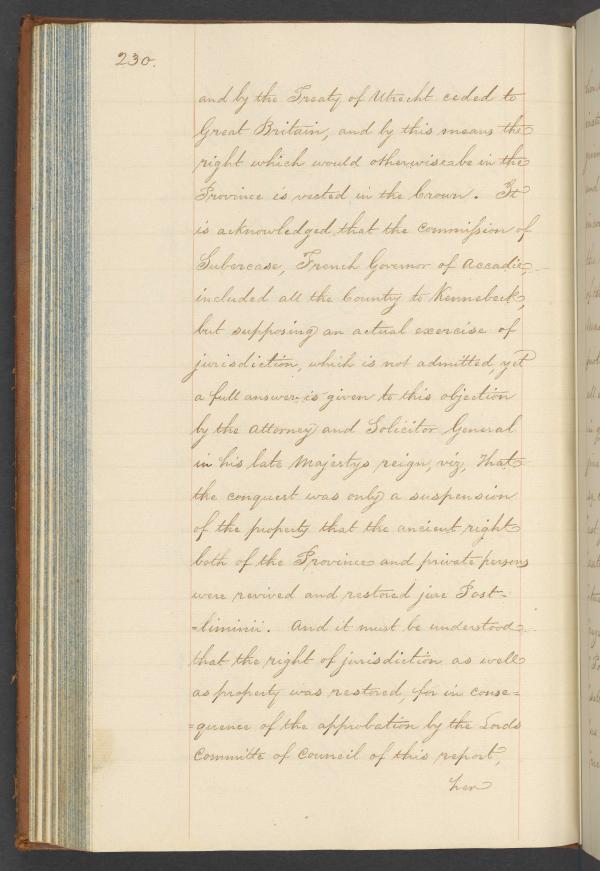 230.
and by the Treaty of Utrecht ceded to
Great Britain, and by this means the
right which would otherwise be in the
Province is vested in the Crown. It
is acknowledged, that the commission of
Subercase, French Governor of Accadie,
included all the Country to Kennebeck,
but supposing an actual exercise of
jurisdiction, which is not admitted, yet
a full answer is given to this objection
by the Attorney and Solicitor General
in his late Majestys reign, viz, That
the conquest was only a suspension
of the property that the ancient right
both of the Province and private persons
were revived and restored jure Post-
=liminii. And it must be understood
that the right of jurisdiction as well
as property was restored, for in conse=
=quence of the approbation by the Lords
Committe of Council of this report,
her